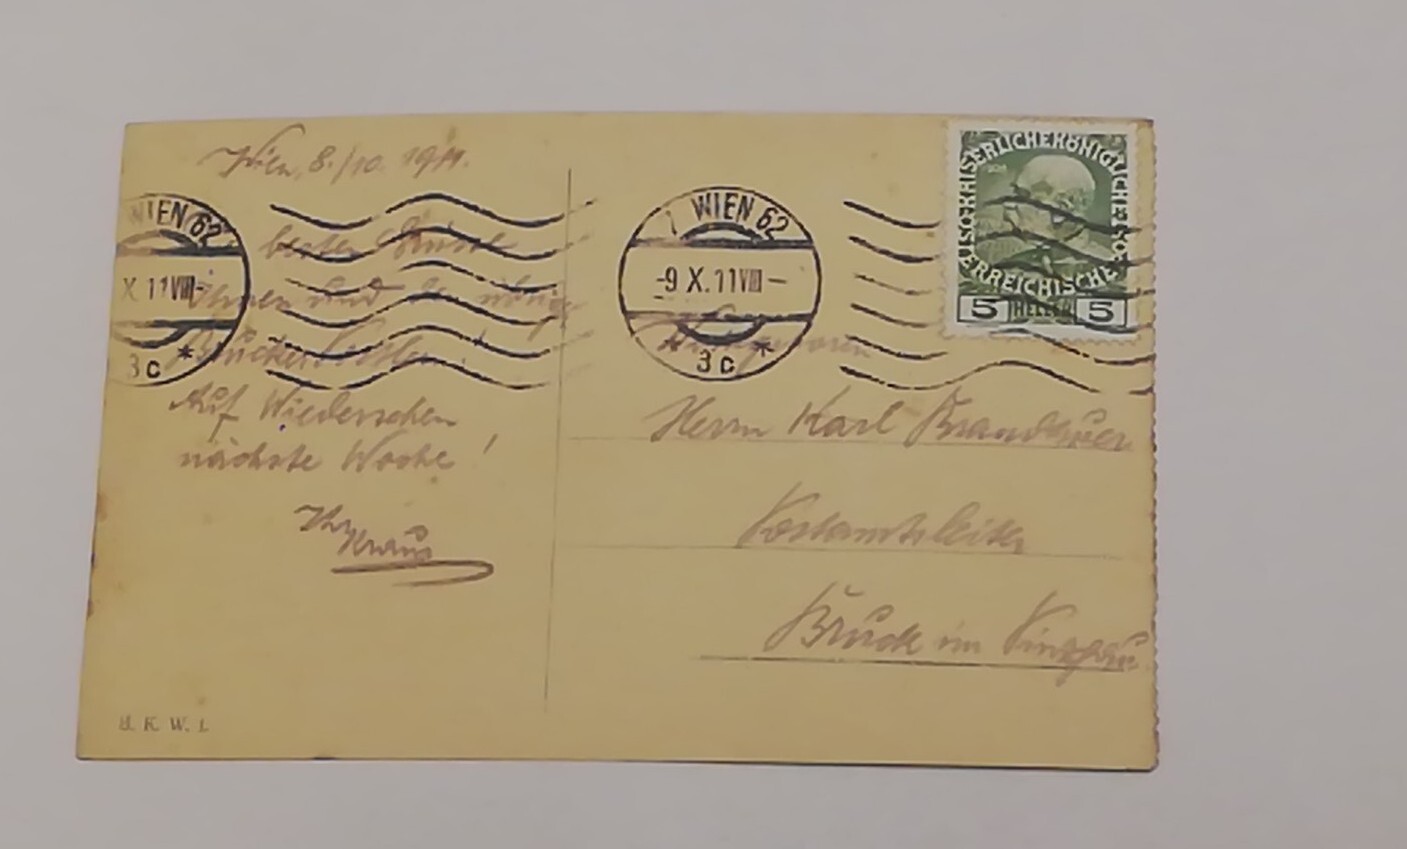 Wien, 8./10. 1911.
besten Grüsse
Ihnen und d. übrige
Brucker
Auf Wiedersehen
nächste Woche!
Ihr
Kraus
B. K. W. I.
WIEN 62
X. 11 VIII-
3c *
1 WIEN 62
-9 X. 11 VIII-
3c *
KAISERLICHE KÖNIGLICHE ÖSTERREICHISCHE POST
5 HELLER 5
Herrn Karl Brandauer
Postamtsleiter
Bruck im Pinzgau